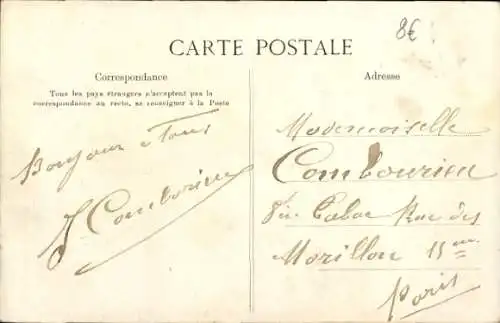 8€
CARTE POSTALE
Correspondance
Tous les pays étrangers n'acceptent pas la
correspondance au recto, se renseigner à la Poste
Bonjour a Tous
J. Combourieu
Adresse
Mademoiselle
Combourieu
Rue des
Morillon 15me
Paris